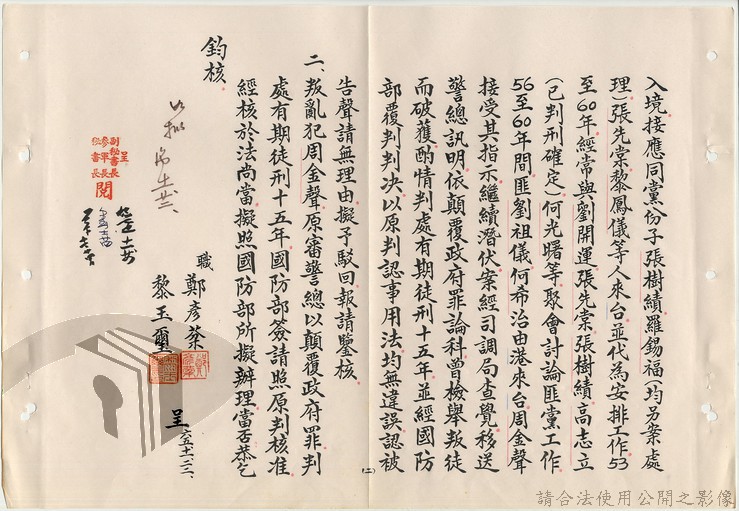 入境接應同黨份子張樹績羅錫福(均另案處
理)張先棠黎鳳儀等人來台並代為安排工作53
至60年經常與劉開運張先棠張樹績高志立
(已判刑確定)何光曙等聚會討論匪黨工作
56至60年間匪劉祖儀何希治由港來台周金聲
接受其指示繼續潛伏案經司調局查覺移送
警總訊明依顛覆政府罪論科曾檢舉叛徒
而破獲酌情判處有期徒刑十五年並經國防
部覆判判決以原判認事用法均無違誤認被
(二)
告聲請無理由擬予駁回報請鑒核
二、叛亂犯周金聲原審警總以顛覆政府罪判
處有期徒刑十五年國防部簽請照原判核准
經核於法尚當擬照國防部所擬辦理當否恭乞
鈞核
職 鄭彥棻
黎玉璽
呈
六五、十一、二二、
呈
副秘書長
參軍長
秘書長
閱
請合法使用公開之影像